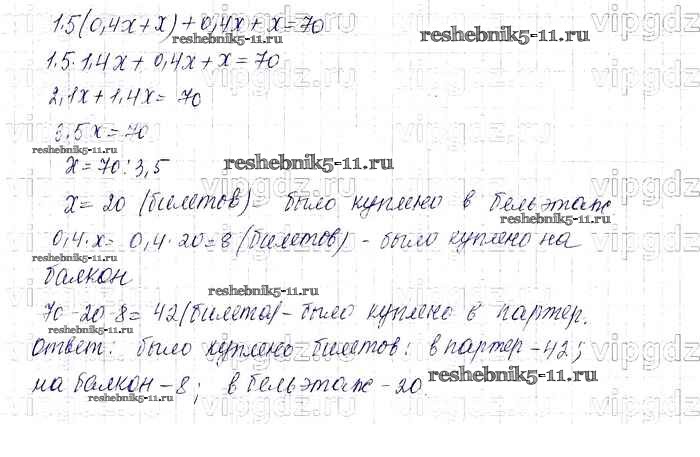 1.5(0,4x+x)+0,4x+x=70
reshebnik5-11.ru reshebnik5-11.ru
1.5·1,4x+0,4x+x=70
2,1x+1,4x=70
3,5x=70
reshebnik5-11.ru
x=70:3,5 reshebnik5-11.ru
x=20 (билетов)- было куплено в бельэтаж
reshebnik5-11.ru
0,4·x=0,4·20=8 (билетов) - было куплено на
reshebnik5-11.ru
балкон
reshebnik5-11.ru
70-20-8=42(билета)-было куплено в партер.
reshebnik5-11.ru
Ответ: было куплено билетов: в партер-42;
на балкон-8; в бельэтаж-20. reshebnik5-11.ru
reshebnik5-11.ru
vipgdz